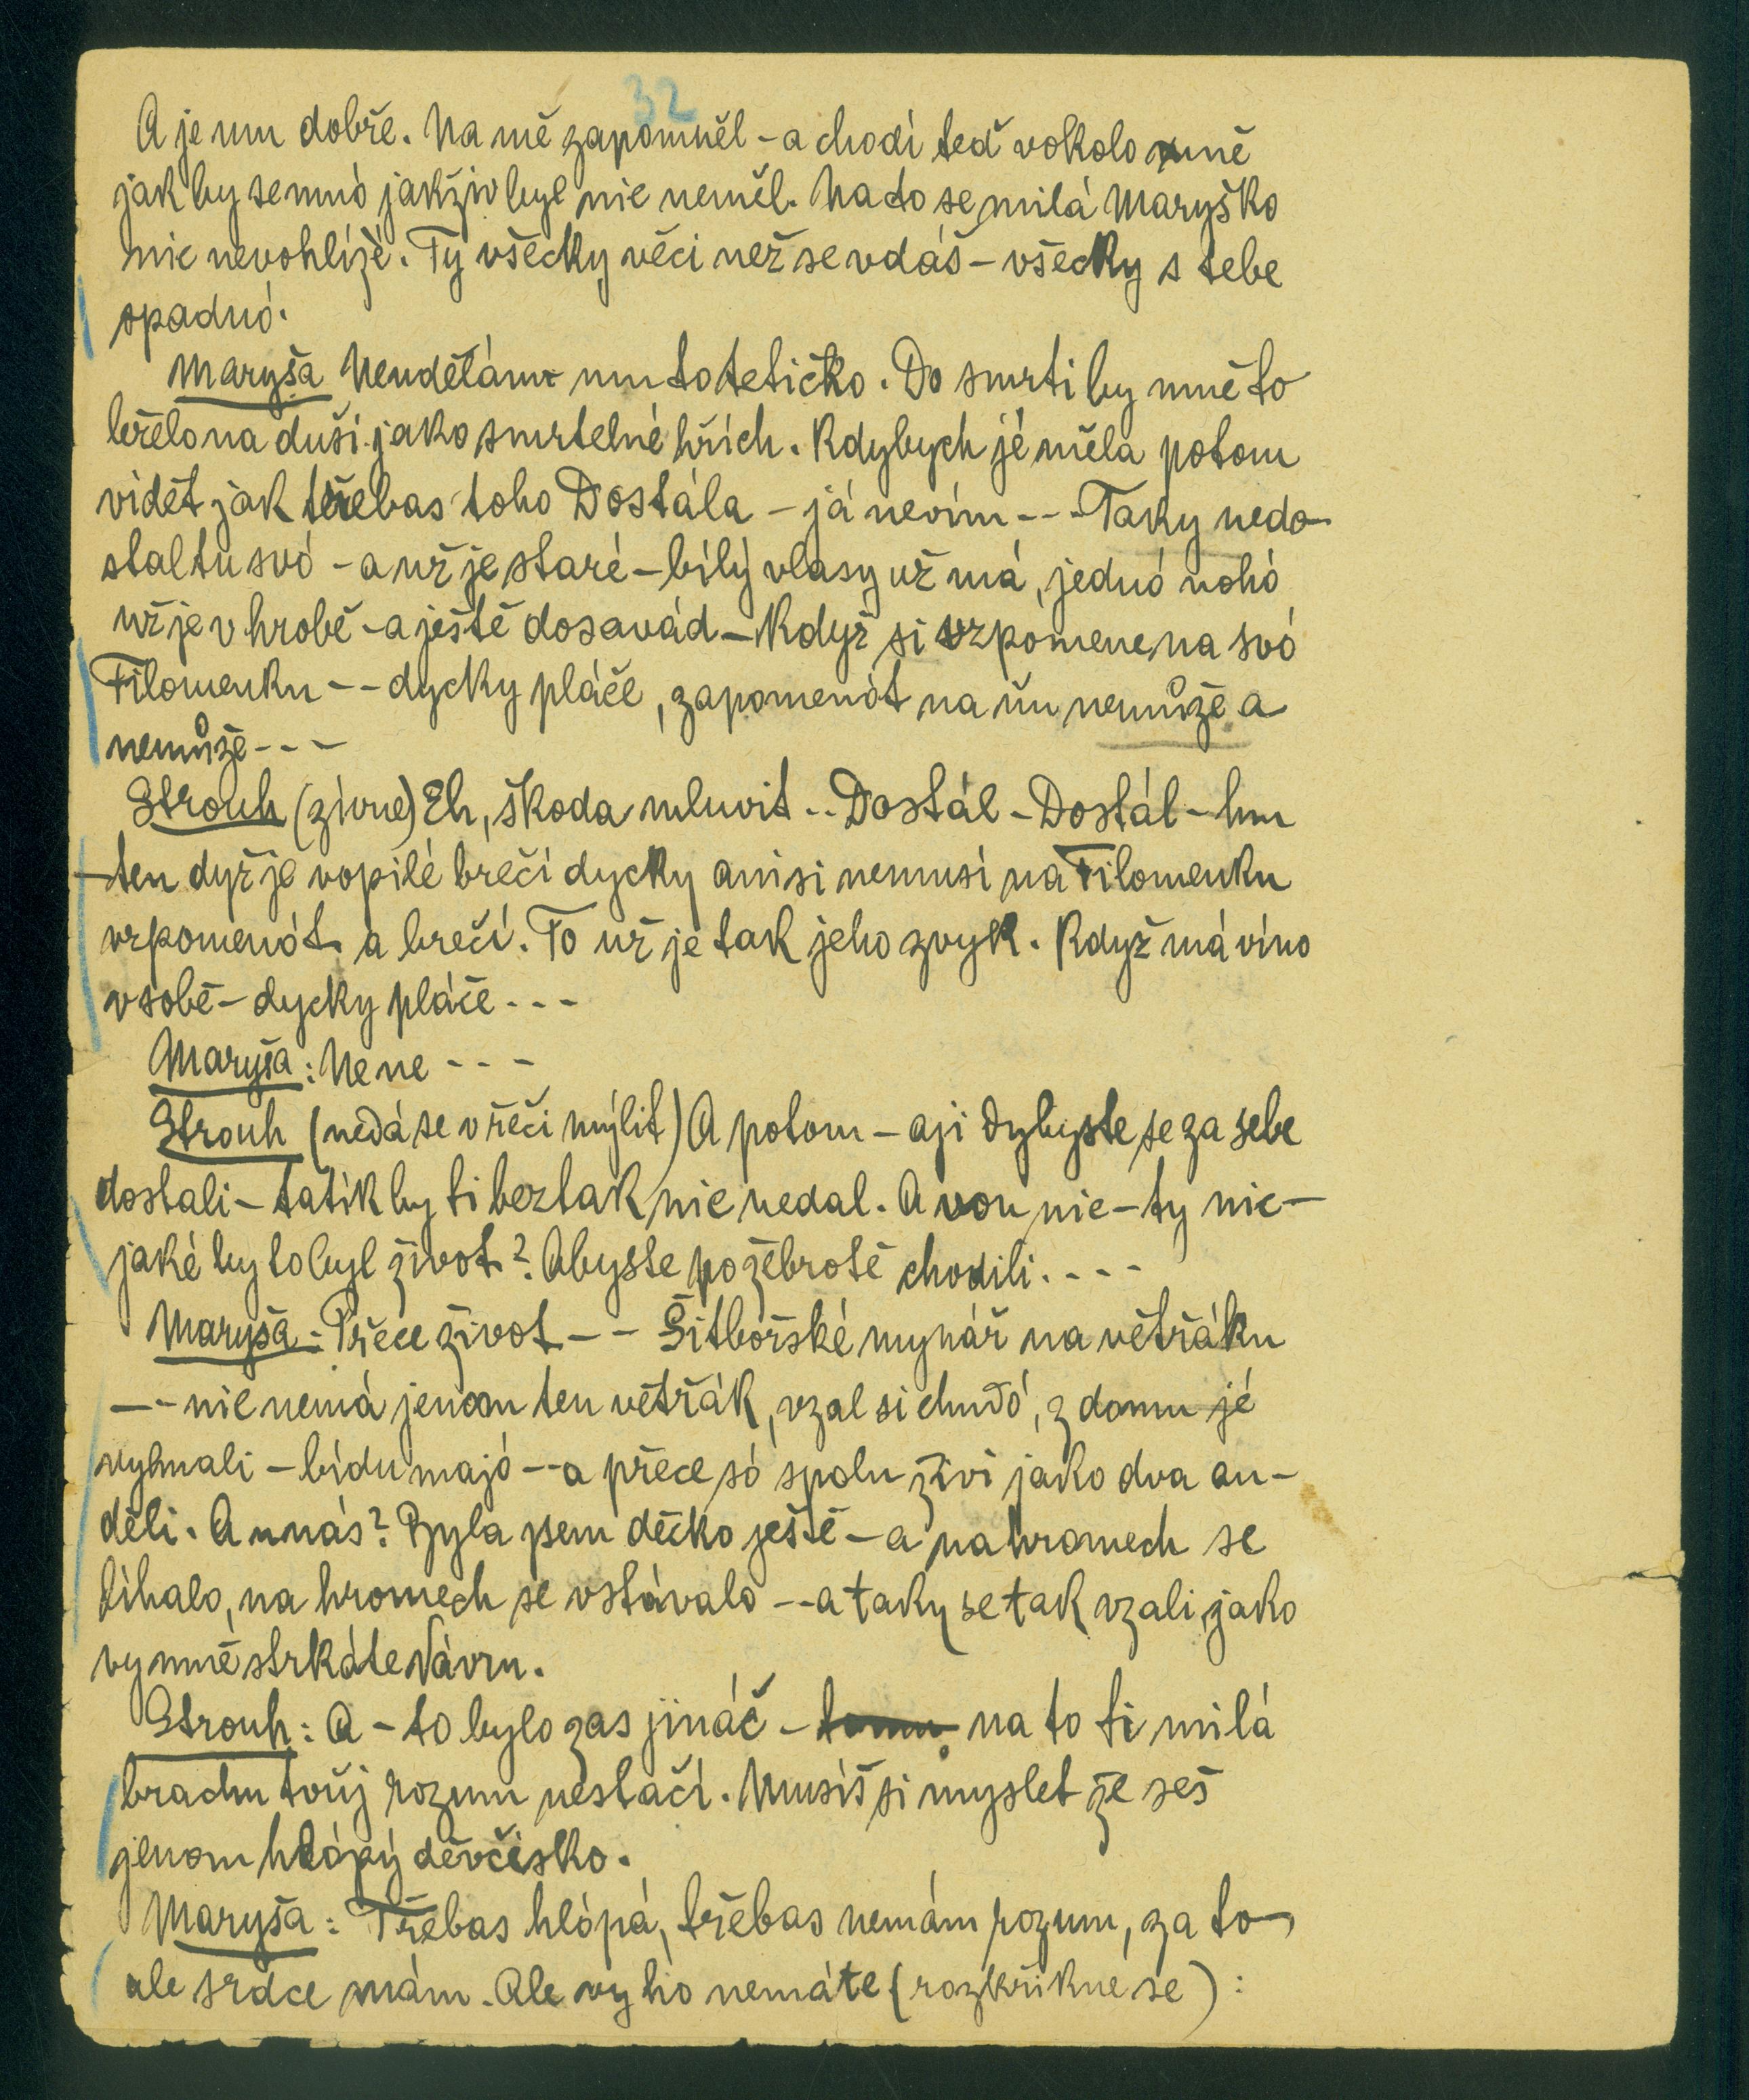 32
A je mu dobře. Na mě zapomněl – a chodí teď vokolo mně
jak by se mnó jakživ byl nic neměl. Na to se milá Maryško
nic nevohlížé. Ty všecky věci než se vdáš – všecky s tebe
opadnó.
Maryša Neudělám mu to tetičko. Do smrti by mně to
leželo na duši jako smrtelné hřích. Kdybych jé měla potom
vidět jak třebas toho Dostála – já nevím --- Taky nedo-
stal tu svó – a už je staré – bílý vlasy už má, jednó nohó
už je v hrobě – a ještě dosavád – Když si vzpomene na svó
Filomenku -- dycky pláče, zapomenót na ňu nemůže a
nemůže ---
Strouh (zívne) Eh, škoda mluvit -- Dostál – Dostál – hm
– ten dyž je vopilé brečí dycky ani si nemusí na Filomenku
vzpomenót a brečí. To už je tak jeho zvyk. Když má víno
v sobě – dycky pláče ---
Maryša: Ne ne ---
Strouh (nedá se v řeči mýlit) A potom – aji dybyste se za sebe
dostali – tatík by ti beztak nic nedal. A von nic – ty nic –
jaké by to byl život? Abyste po žebrotě chodili ----
Maryša: Přece život -- Šitbořské mynář na větřáku
-- nic nemá jenom ten větřák, vzal si chudó, z domu jé
vyhnali – bídu majó -- a přece só spolu živi jako dva an-
děli. A u nás? Byla jsem děcko ještě – a na hromech se
líhalo, na hromech se vstávalo -- a taky se tak vzali, jako
vy mně strkáte Vávru.
Strouh: A – to bylo zas jináč – tomu na to ti milá
brachu tvůj rozum nestačí. Musíš si myslet že seš
jenom hlópý děvčisko.
Maryša: Třebas hlópá, třebas nemám rozum, za to
ale srdce mám. Ale vy ho nemáte (rozkřikne se):